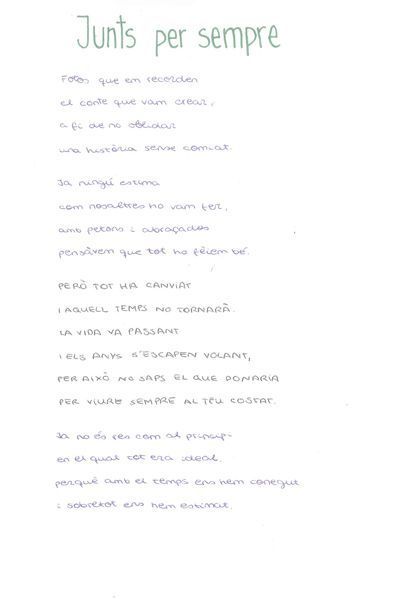 Junts per sempre
Fotos que em recorden
el conte que vam crear,
a fi de no oblidar
una història sense comiat.
Ja ningú estima
com nosaltres ho vam fer,
amb petons i abraçades
pensàvem que tot ho fèiem bé.
PERÒ TOT HA CANVIAT
I AQUELL TEMPS NO TORNARÀ.
LA VIDA VA PASSANT
I ELS ANYS S'ESCAPEN VOLANT,
PER AIXÒ NO SAPS EL QUE DONARIA
PER VIURE SEMPRE AL TEU COSTAT.
Ja no és res com al principi
en el qual tot era ideal,
perquè amb el temps ens hem conegut
i sobretot ens hem estimat.